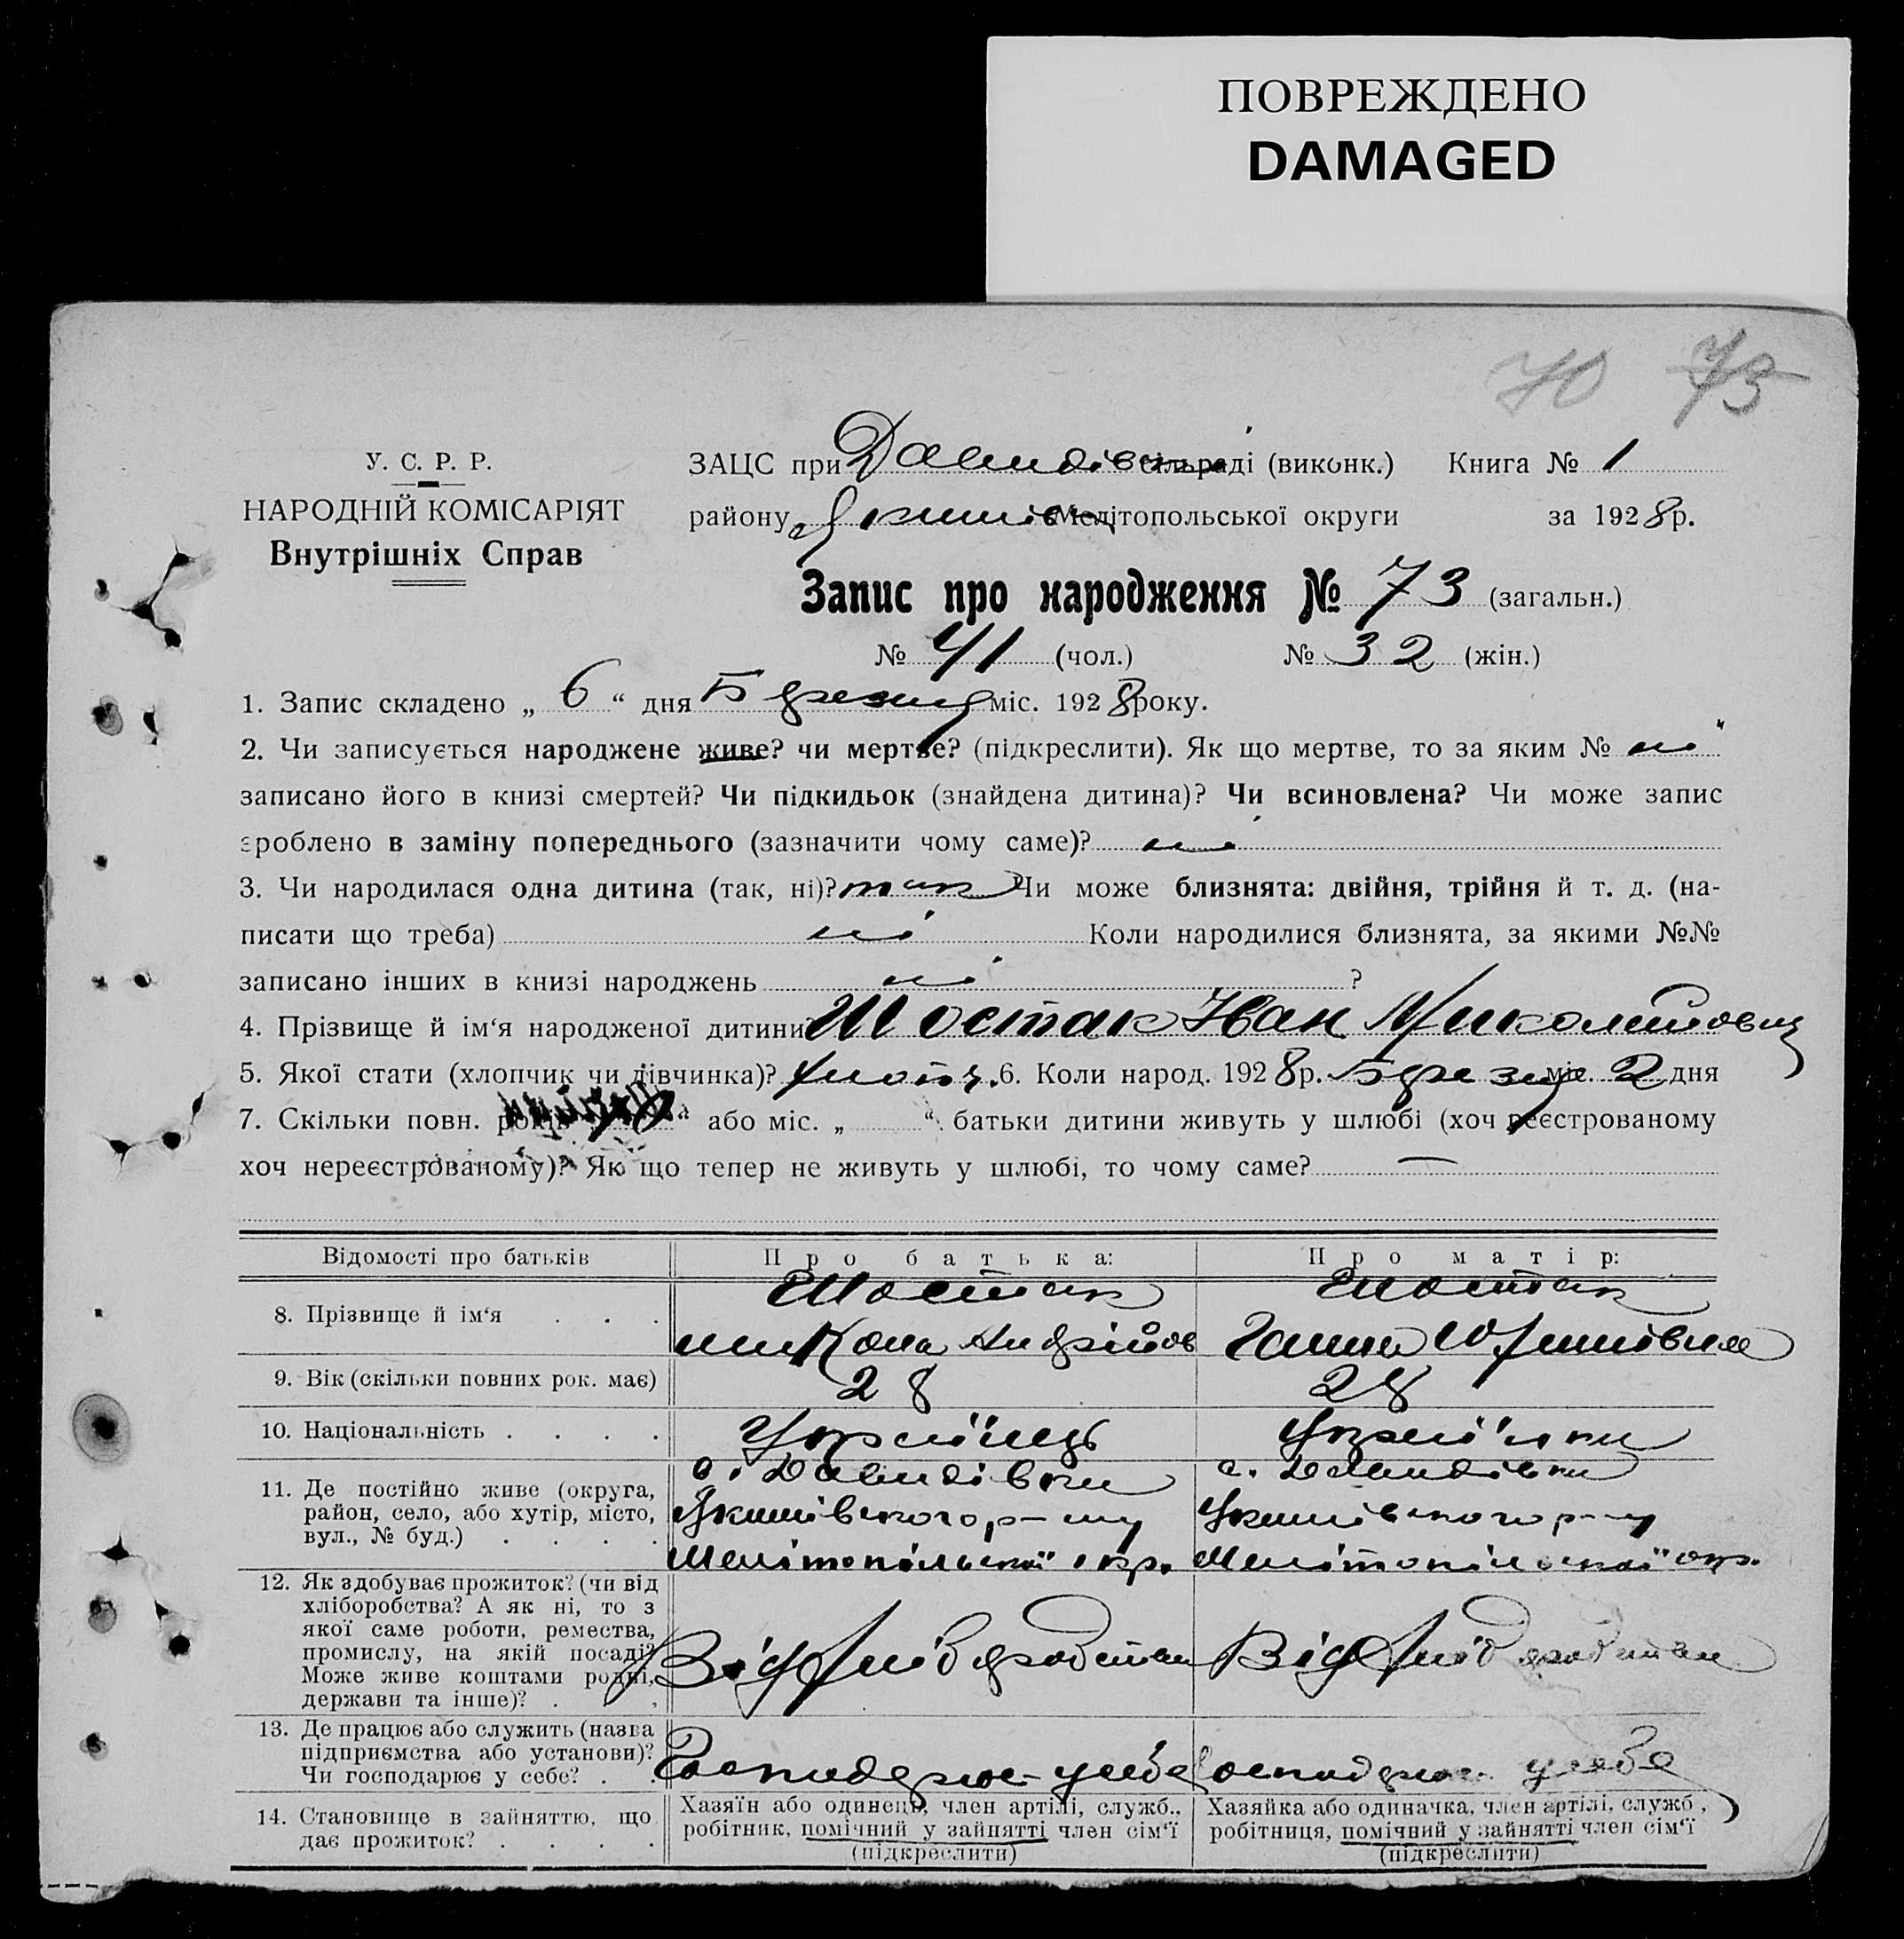 ПОВРЕЖДЕНО
DAMAGED
70 73
У. С. Р. Р.
НАРОДНІЙ КОМІСАРІЯТ
Внутрішніх Справ
ЗАЦС при Давидівс сільраді (виконк.) Книга № 1
району Якимівс Мелітопольської округи за 1928 р.
Запис про народження № 73 (загальн.)
№ 41 (чол.) № 32 (жін.)
1. Запис складено „ 6 “ дня Березня міс. 1928 року.
2. Чи записується народжене живе? чи мертве? (підкреслити). Як що мертве, то за яким № ні
записано його в книзі смертей? Чи підкидьок (знайдена дитина)? Чи всиновлена? Чи може запис
зроблено в заміну попереднього (зазначити чому саме)? ні
3. Чи народилася одна дитина (так, ні)? так Чи може близнята: двійня, трійня й т. д. (на-
писати що треба) ні Коли народилися близнята, за якими №№
записано інших в книзі народжень ні ?
4. Прізвище й ім‘я народженої дитини? Шостак Иван Миколайович
5. Якої стати (хлопчик чи дівчинка)? хлопч. 6. Коли народ. 1928 р. Березня міс. 2 дня
7. Скільки повн. років „ “ або міс. „ “ батьки дитини живуть у шлюбі (хоч реєстрованому
хоч нереєстрованому)? Як що тепер не живуть у шлюбі, то чому саме? —
Відомості про батьків Про батька: Про матір:
8. Прізвище й ім‘я . . . Шостак Шостак
Микола Андрійов Ганна Юхимівна
9. Вік (скільки повних рок. має) 28 28
10. Національність . . . . Українець Українка
11. Де постійно живе (округа, район, село, або хутір, місто, вул., № буд.) . . . .
с. Давидівки
Якимівского р-ну
Мелітопільської окр.
с. Давидівки
Якимівского р-ну
Мелітопільської окр.
12. Як здобуває прожиток? (чи від
хліборобства? А як ні, то з
якої саме роботи, ремества,
промислу, на якій посаді?
Може живе коштами родні,
держави та інше)? . . .
Від хліборобства Від хліборобства
13. Де працює або служить (назва
підприємства або установи)?
Чи господарює у себе? . .
Господарює у себе Господарює у себе
14. Становище в зайняттю, що
дає прожиток? . . . .
Хазяїн або одинець, член артілі, служб.,
робітник, помічний у зайнятті член сім‘ї
(підкреслити)
Хазяйка або одиначка, член артілі, служб.,
робітниця, помічний у зайнятті член сім‘ї
(підкреслити)